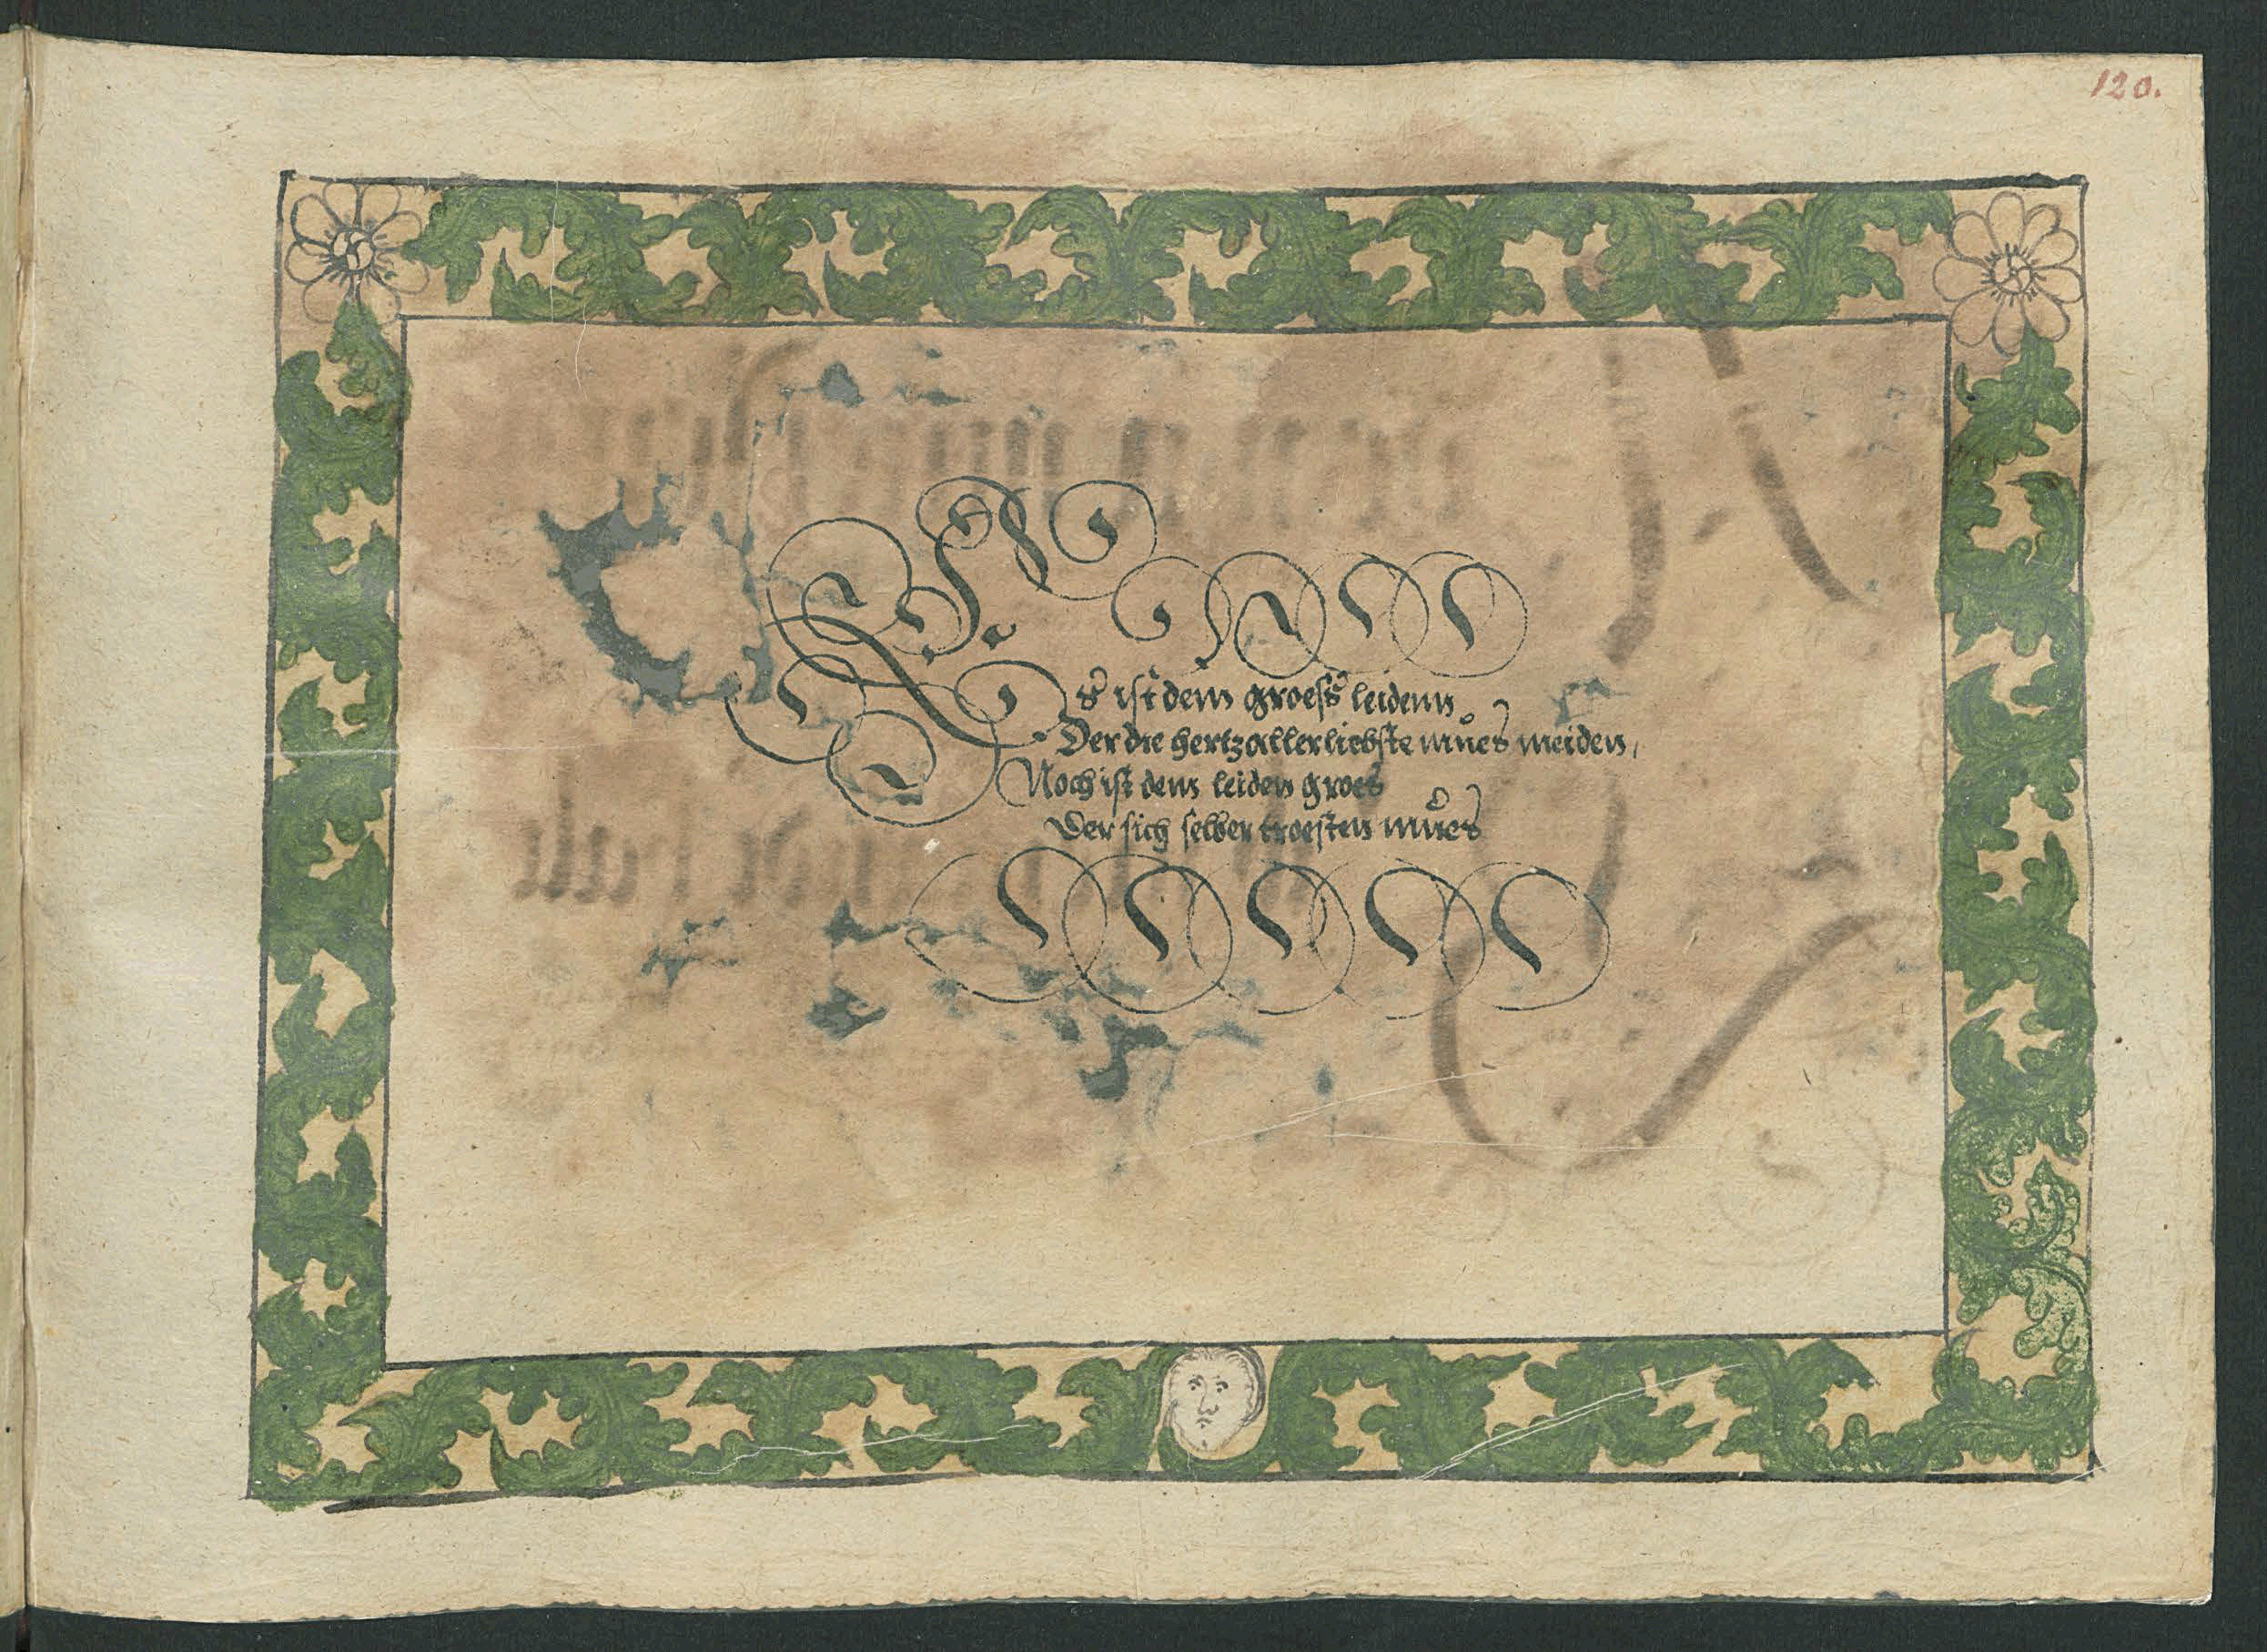 120.
Es ist dem groess leidenn
Der die hertzallerliebste mues meiden,
Noch ist dem leiden groes
Der sich selber troesten mues